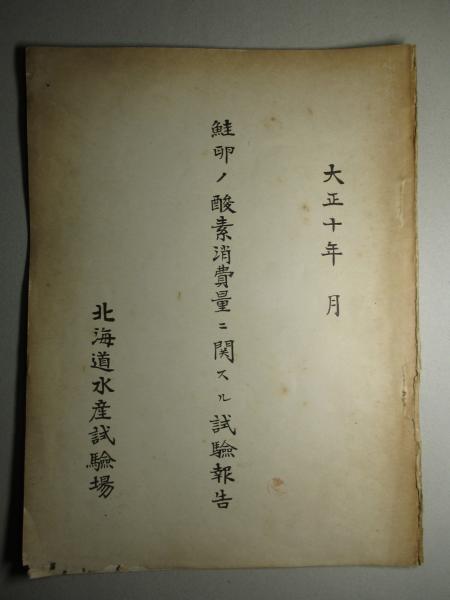 大正十年 月
鮭卵ノ酸素消費量ニ関スル試驗報告
北海道水産試驗場